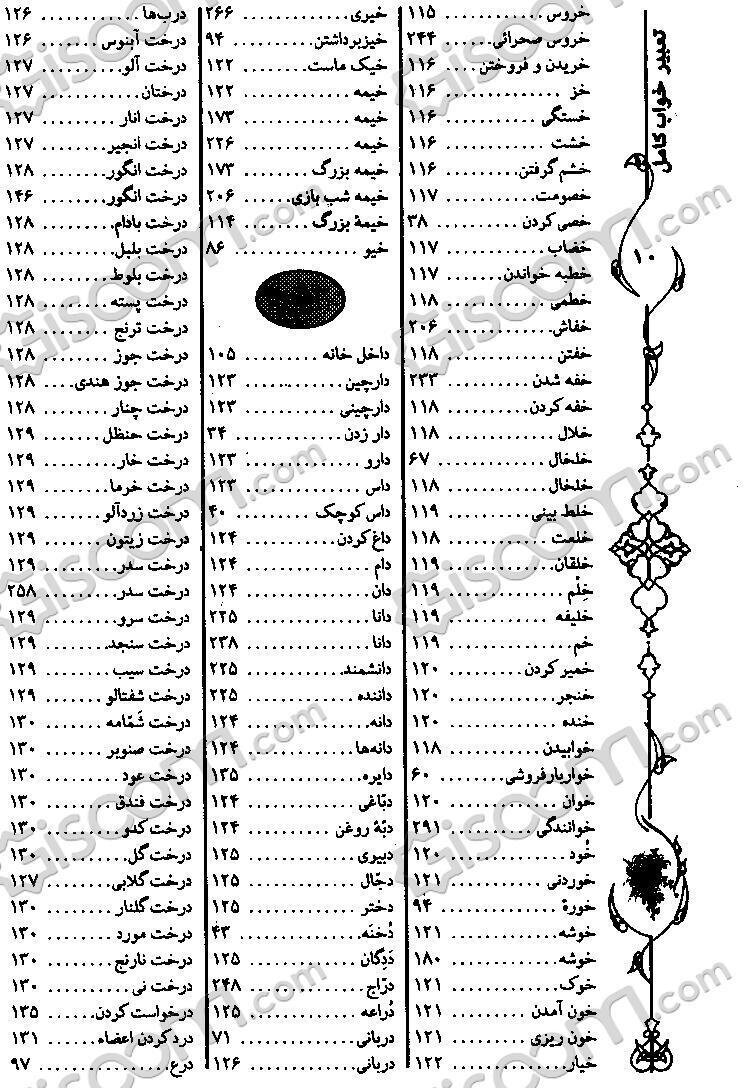 تعبیر خواب کامل
۱۰
خروس ۱۱۵
خروس صحرائی ۲۴۴
خریدن و فروختن ۱۱۶
خز ۱۱۶
خستگی ۱۱۶
خشت ۱۱۶
خشم گرفتن ۱۱۶
خصومت ۱۱۷
خصی کردن ۳۸
خضاب ۱۱۷
خطبه خواندن ۱۱۷
خطمی ۱۱۸
خفاش ۲۰۶
خفتن ۱۱۸
خفه شدن ۲۳۳
خفه کردن ۱۱۸
خلال ۱۱۸
خلخال ۶۷
خلخال ۱۱۸
خلط بینی ۱۱۹
خلعت ۱۱۸
خلقان ۱۱۹
خِلْم ۱۱۹
خلیفه ۱۱۹
خم ۱۱۹
خمیر کردن ۱۲۰
خنجر ۱۲۰
خنده ۱۲۰
خوابیدن ۱۱۸
خواربارفروشی ۶۰
خوان ۱۲۰
خوانندگی ۲۹۱
خُود ۱۲۰
خوردنی ۱۲۱
خورهٔ ۹۴
خوشه ۱۲۱
خوشه ۱۸۰
خوک ۱۲۱
خون آمدن ۱۲۱
خون ریزی ۱۲۱
خیار ۱۲۲
خیری ۲۶۶
خیزبرداشتن ۹۴
خیک ماست ۱۲۲
خیمه ۱۲۲
خیمه ۱۷۳
خیمه ۲۲۶
خیمه بزرگ ۱۷۳
خیمه شب بازی ۲۰۶
خیمهٔ بزرگ ۱۱۴
خیو ۸۶
داخل خانه ۱۰۵
دارچین ۱۲۳
دارچینی ۱۲۳
دار زدن ۳۴
دارو ۱۲۳
داس ۱۲۳
داس کوچک ۴۰
داغ کردن ۱۲۴
دام ۱۲۴
دان ۱۲۴
دانا ۲۲۵
دانا ۲۳۸
دانشمند ۲۲۵
داننده ۲۲۵
دانه ۱۲۴
دانه‌ها ۱۲۴
دایره ۱۳۵
دبّاغی ۱۲۴
دبّهٔ روغن ۱۲۴
دبیری ۱۲۵
دجّال ۱۲۵
دختر ۱۲۵
دُخنَه ۴۳
دَدِگان ۱۲۵
درّاج ۲۴۸
دُراعه ۱۲۵
دربانی ۷۱
دربانی ۱۲۶
درب‌ها ۱۲۶
درخت آبنوس ۱۲۶
درخت آلو ۱۲۷
درختان ۱۲۷
درخت انار ۱۲۷
درخت انجیر ۱۲۷
درخت انگور ۱۲۸
درخت انگور ۱۴۶
درخت بادام ۱۲۸
درخت بلبل ۱۲۸
درخت بلوط ۱۲۸
درخت پسته ۱۲۸
درخت ترنج ۱۲۸
درخت جوز ۱۲۸
درخت جوز هندی ۱۲۸
درخت چنار ۱۲۸
درخت حنظل ۱۲۹
درخت خار ۱۲۹
درخت خرما ۱۲۹
درخت زردآلو ۱۲۹
درخت زیتون ۱۲۹
درخت سدر ۱۲۹
درخت سدر ۲۵۸
درخت سرو ۱۲۹
درخت سنجد ۱۲۹
درخت سیب ۱۲۹
درخت شفتالو ۱۲۹
درخت شَمّامه ۱۳۰
درخت صنوبر ۱۳۰
درخت عود ۱۳۰
درخت فندق ۱۳۰
درخت کدو ۱۳۰
درخت گل ۱۳۰
درخت گلابی ۱۲۷
درخت گلنار ۱۳۰
درخت مورد ۱۳۰
درخت نارنج ۱۳۰
درخت نی ۱۳۰
درخواست کردن ۱۳۵
درد کردن اعضاء ۱۳۱
درع ۹۷